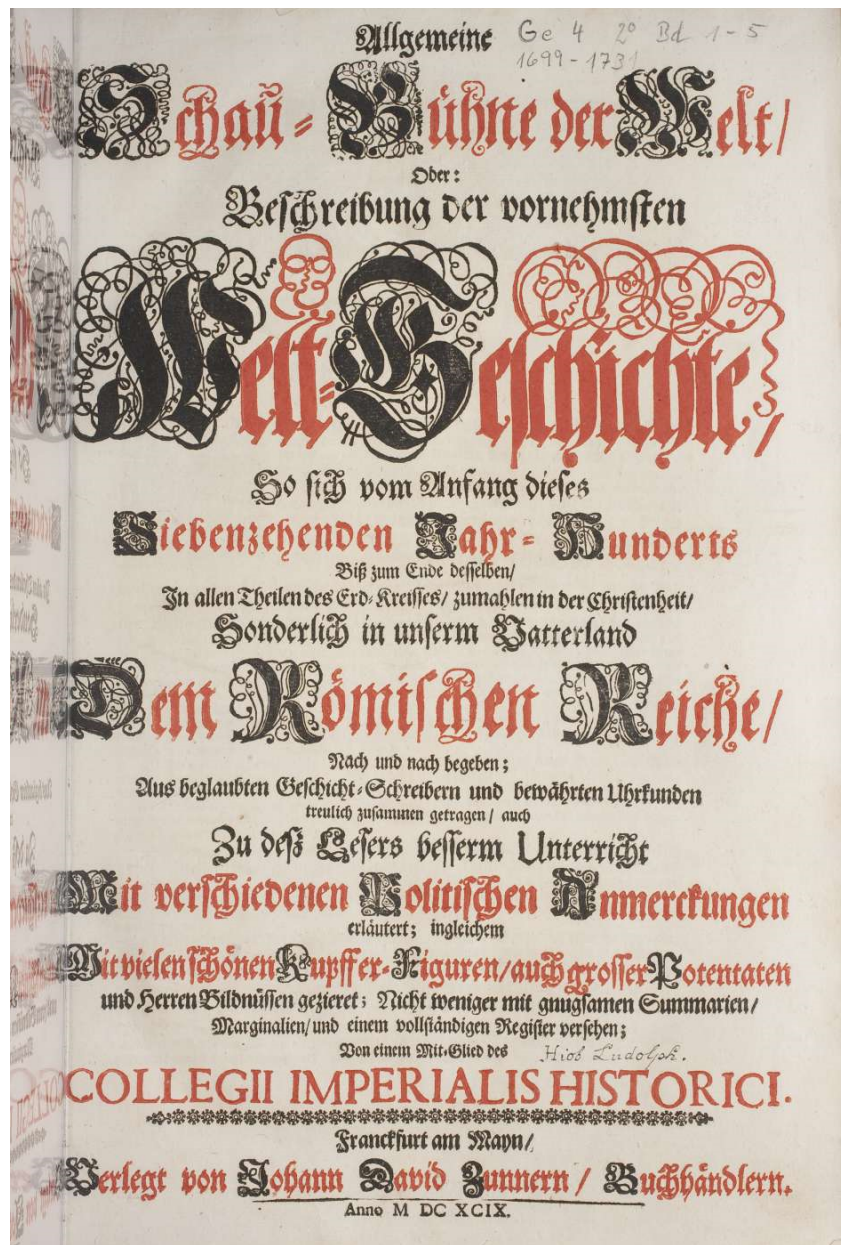 Allgemeine
Ge 4 2° Bd 1-5
1699-1731
Schau-Bühne der Welt/
Oder:
Beschreibung der vornehmsten
Welt-Geschichte/
So sich vom Anfang dieses
Siebenzehenden Jahr-Hunderts
Biß zum Ende desselben/
In allen Theilen des Erd-Kreisses/ zumahlen in der Christenheit/
Sonderlich in unserm Vatterland
Dem Römischen Reiche/
Nach und nach begeben;
Aus beglaubten Geschicht-Schreibern und bewährten Uhrkunden
treulich zusammen getragen/ auch
Zu deß Lesers besserm Unterricht
Mit verschiedenen Politischen Anmerckungen
erläutert; ingleichem
Mit vielen schönen Kupffer-Figuren/ auch grosser Potentaten
und Herren Bildnüssen gezieret; Nicht weniger mit gnugsamen Summarien/
Marginalien/ und einem vollständigen Register versehen;
Von einem Mit-Glied des Hiob Ludolph.
COLLEGII IMPERIALIS HISTORICI.
Franckfurt am Mayn/
Verlegt von Johann David Zunnern/ Buchhändlern.
Anno M DC XCIX.